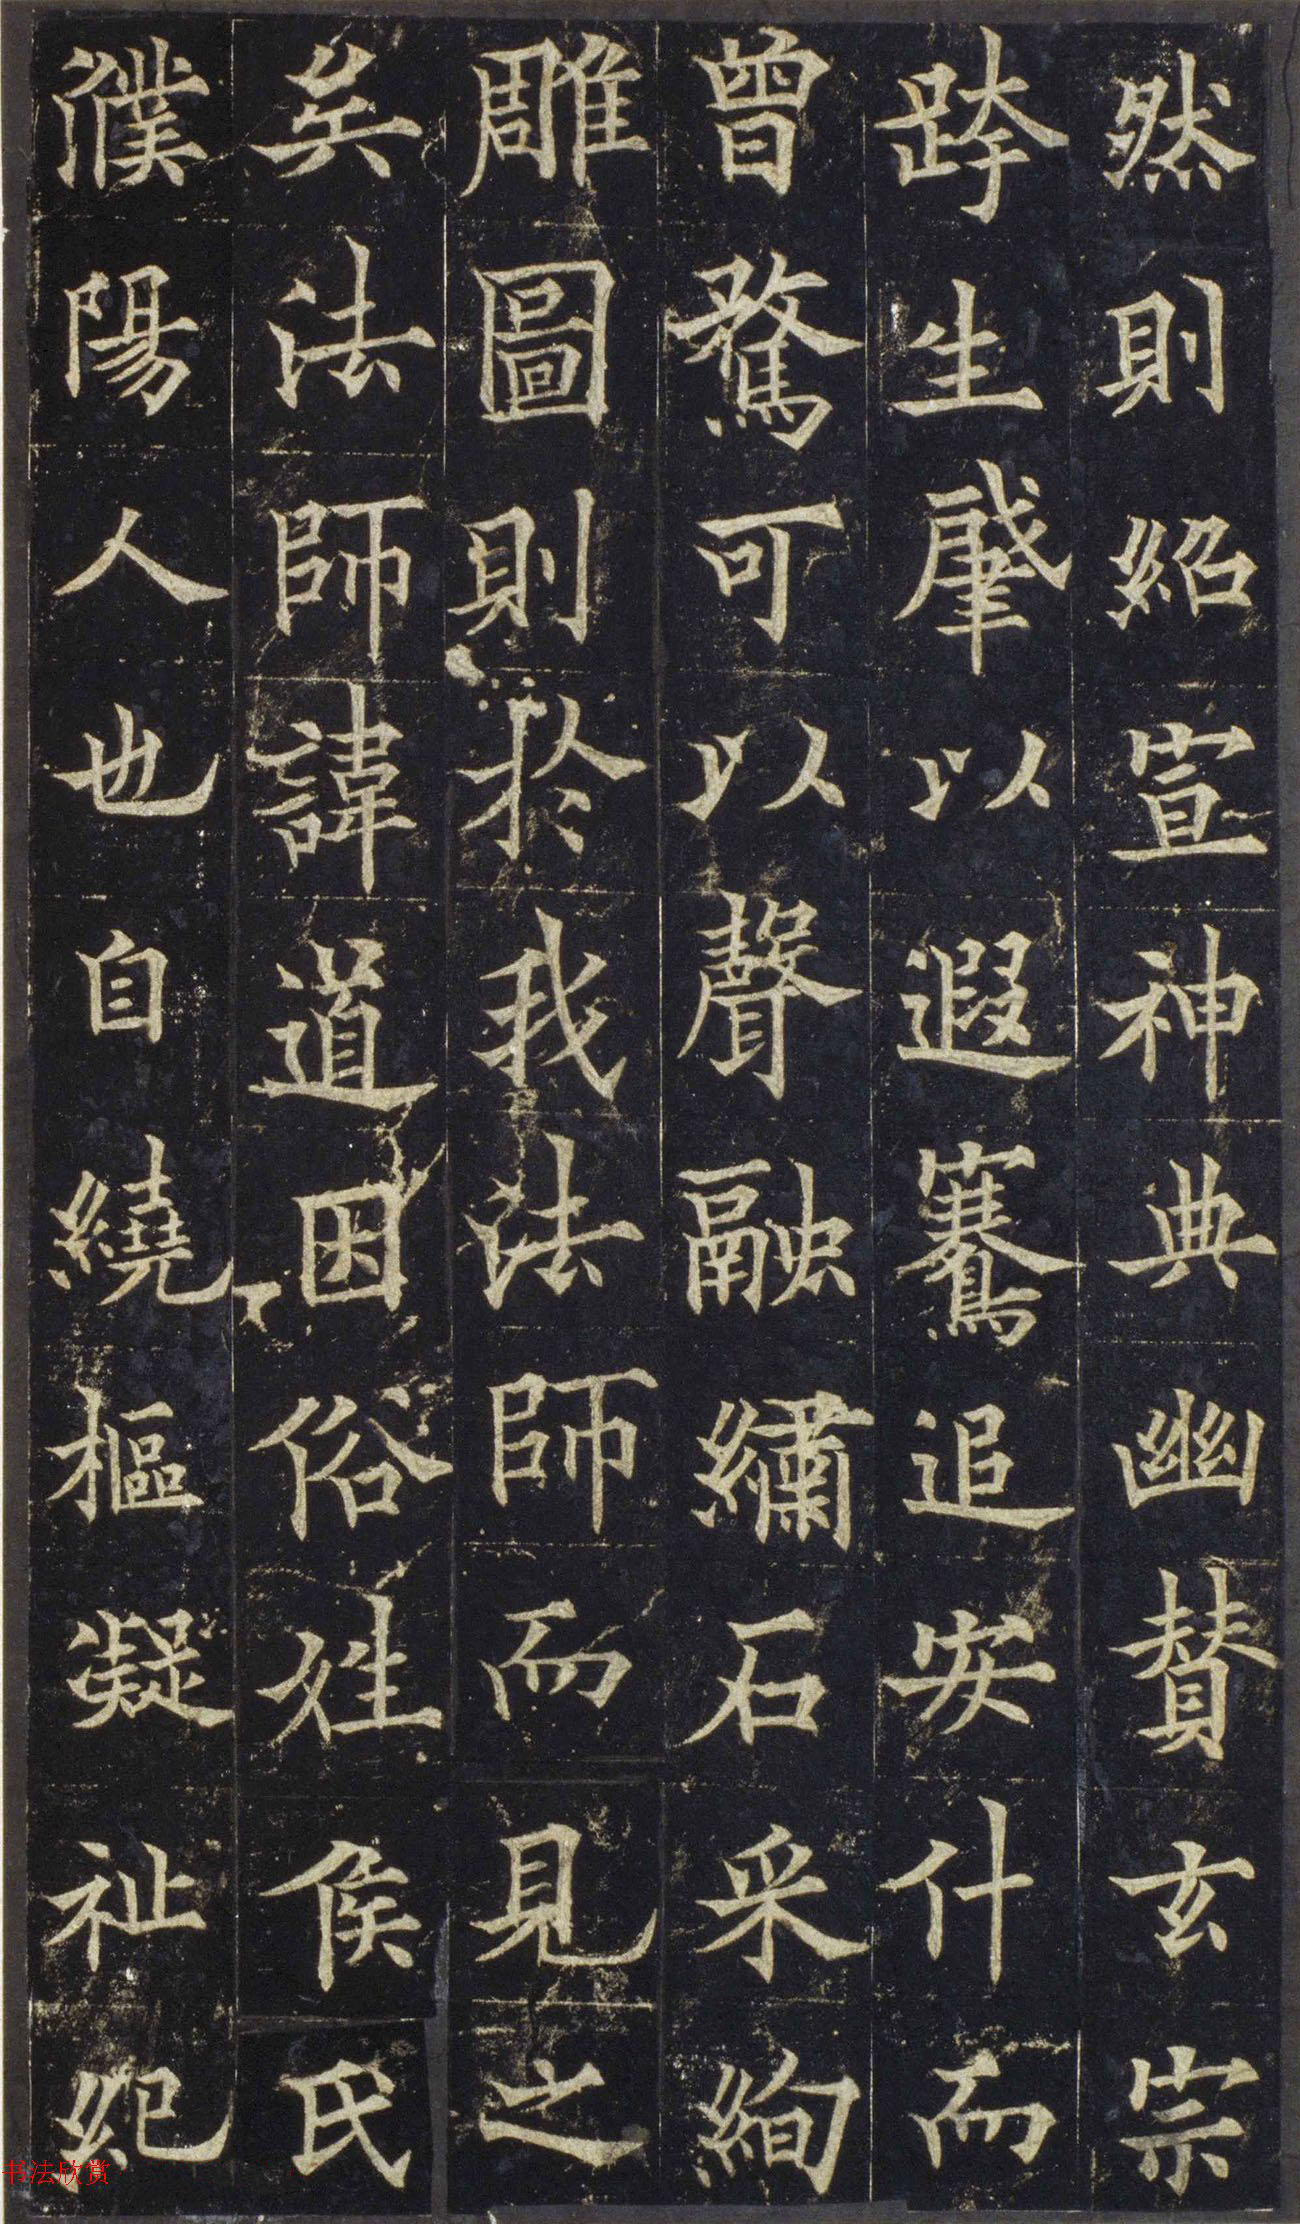 然則紹宣神典幽賛玄宗
跨生肇以遐騫追安什而
曾騖可以聲融繡石采絢
雕圖則於我法師而見之
矣法師諱道因俗姓侯氏
濮陽人也自繞樞凝祉紀
书法欣赏